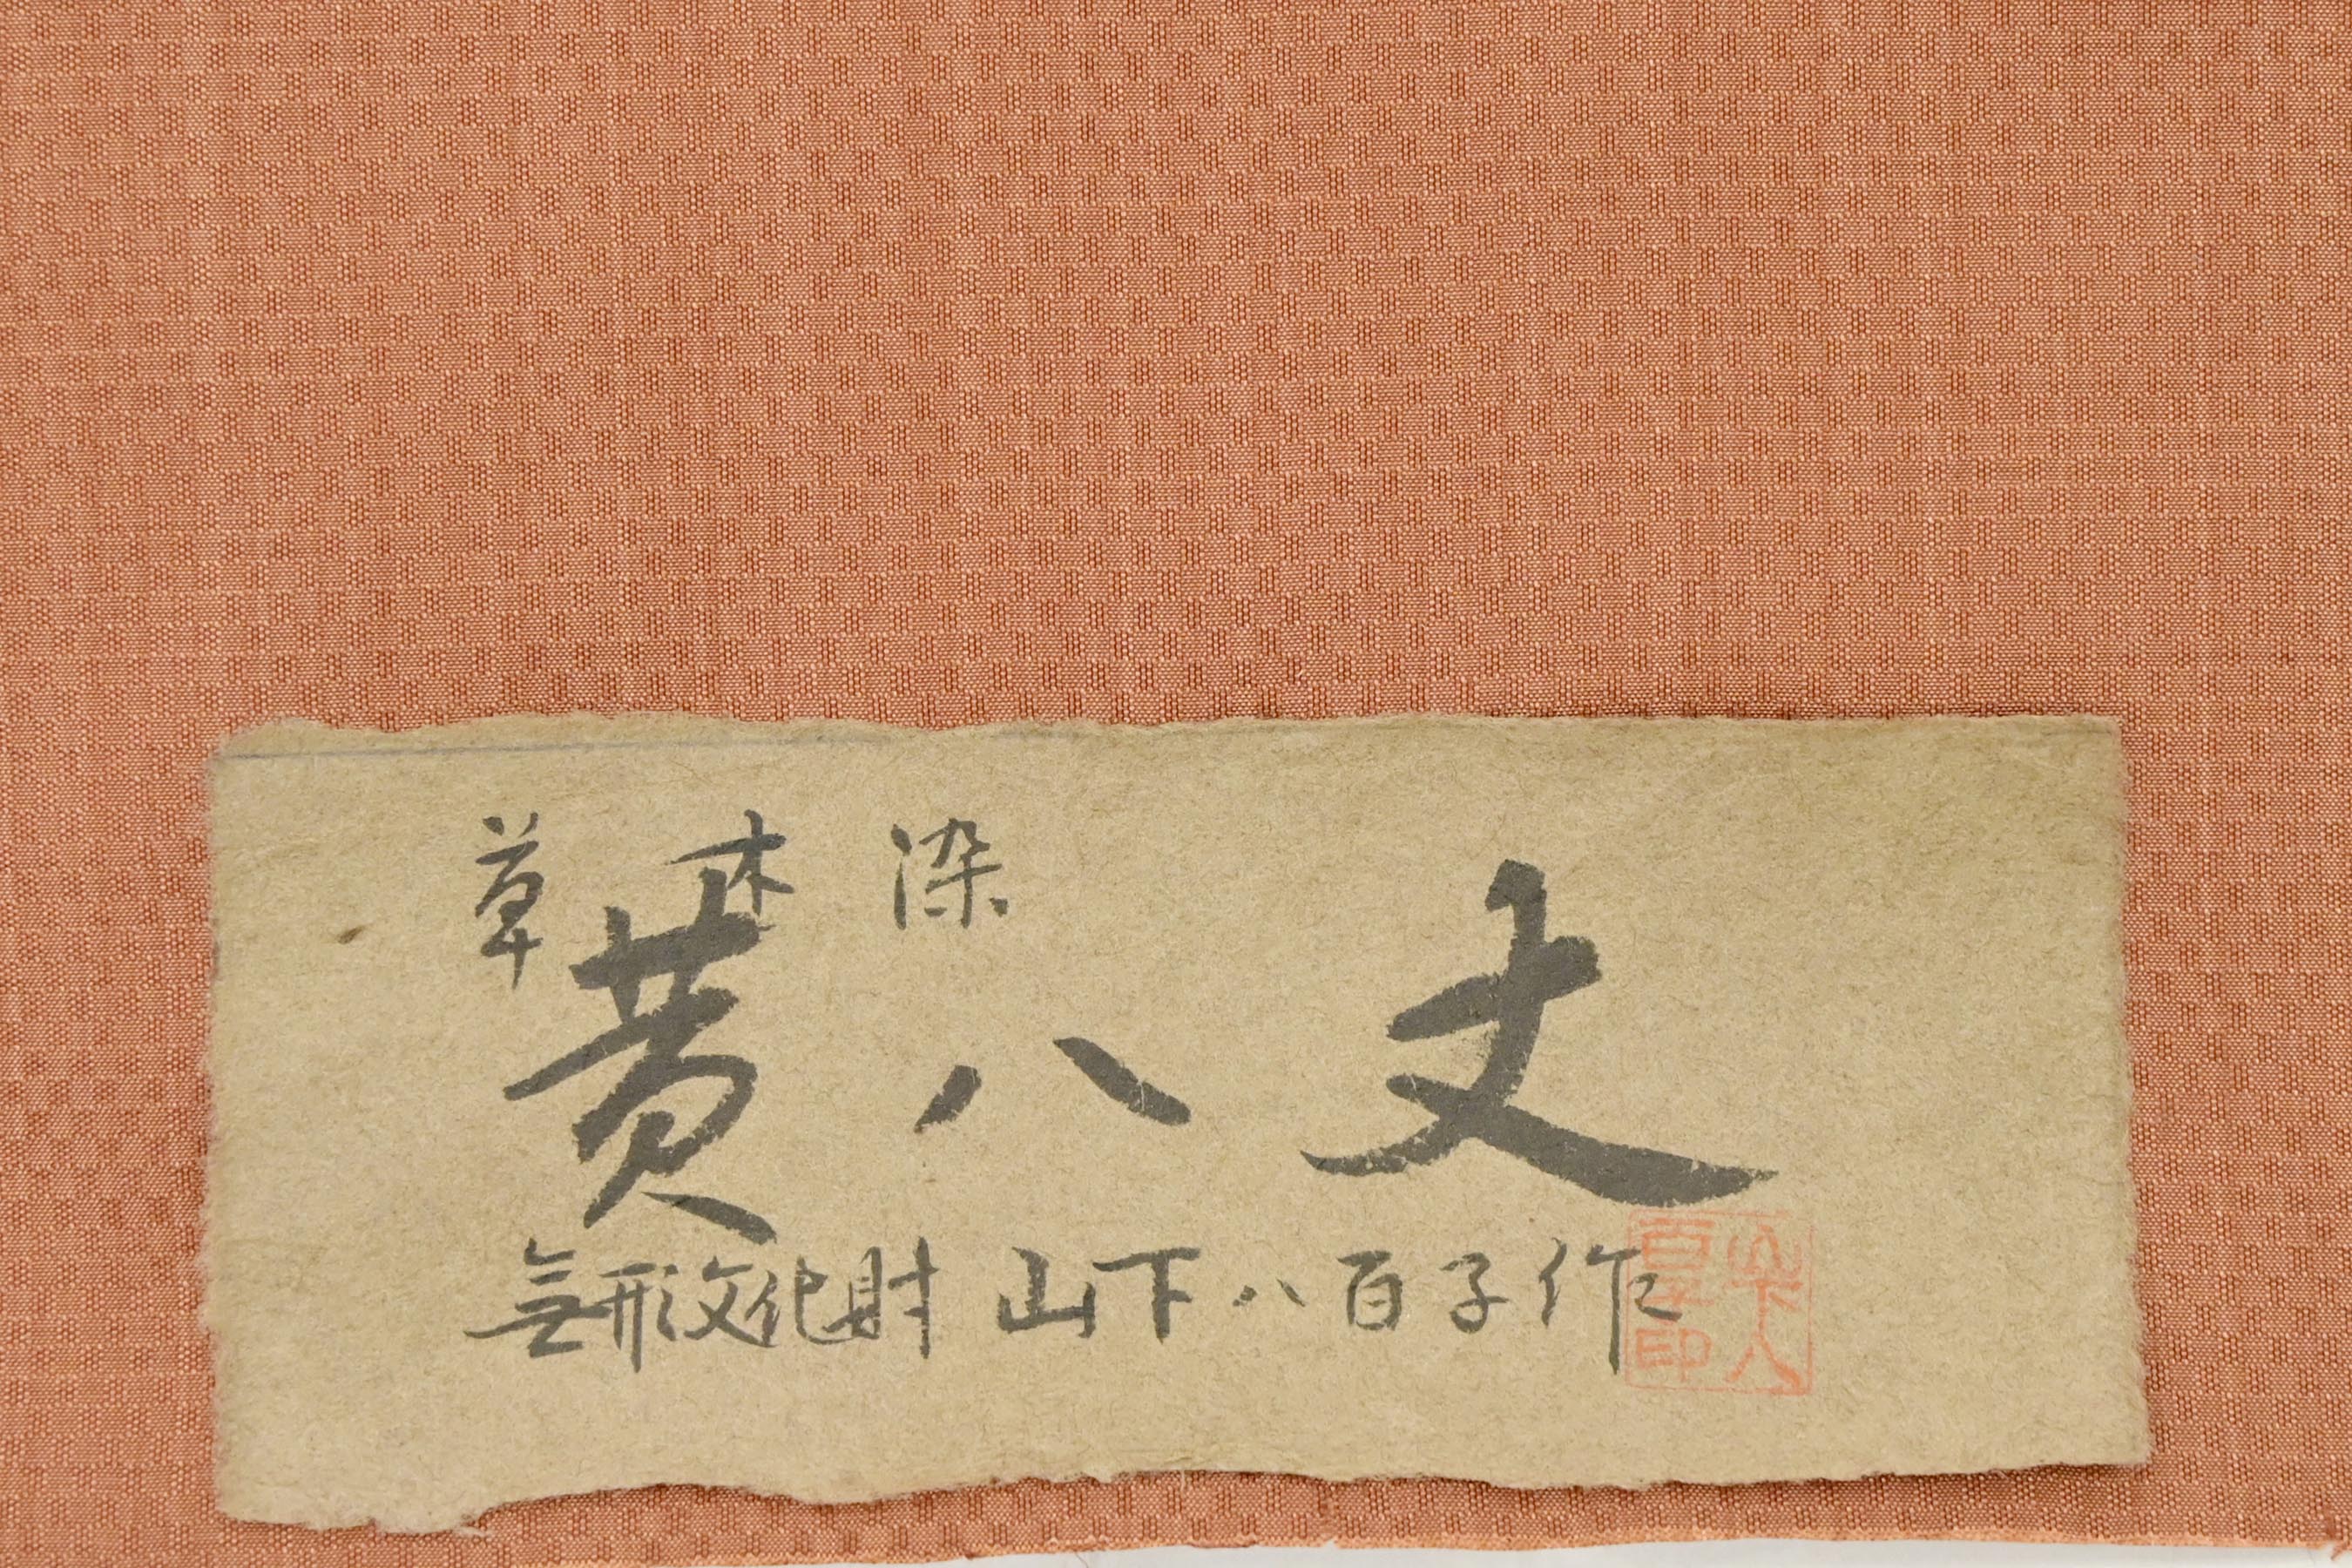 草木染
黄八丈
無形文化財 山下八百子作